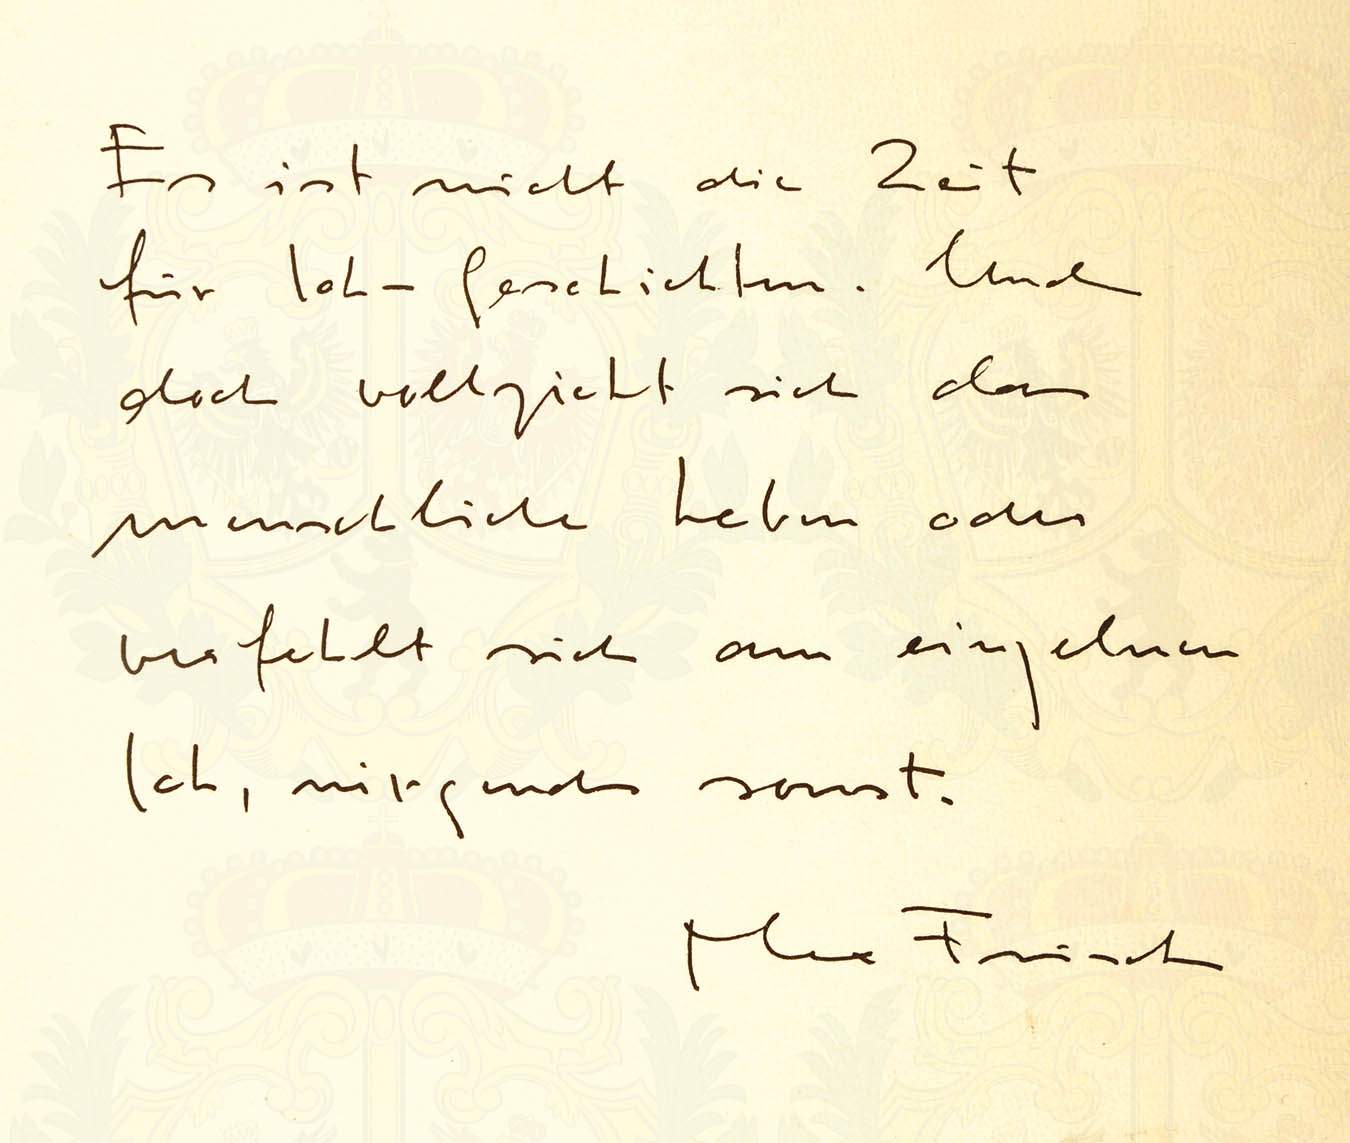 Es ist nicht die Zeit
für Ich-Geschichten. Und
doch vollzieht sich das
menschliche Leben oder
verfehlt sich am einzelnen
Ich, nirgends sonst.
Max Frisch